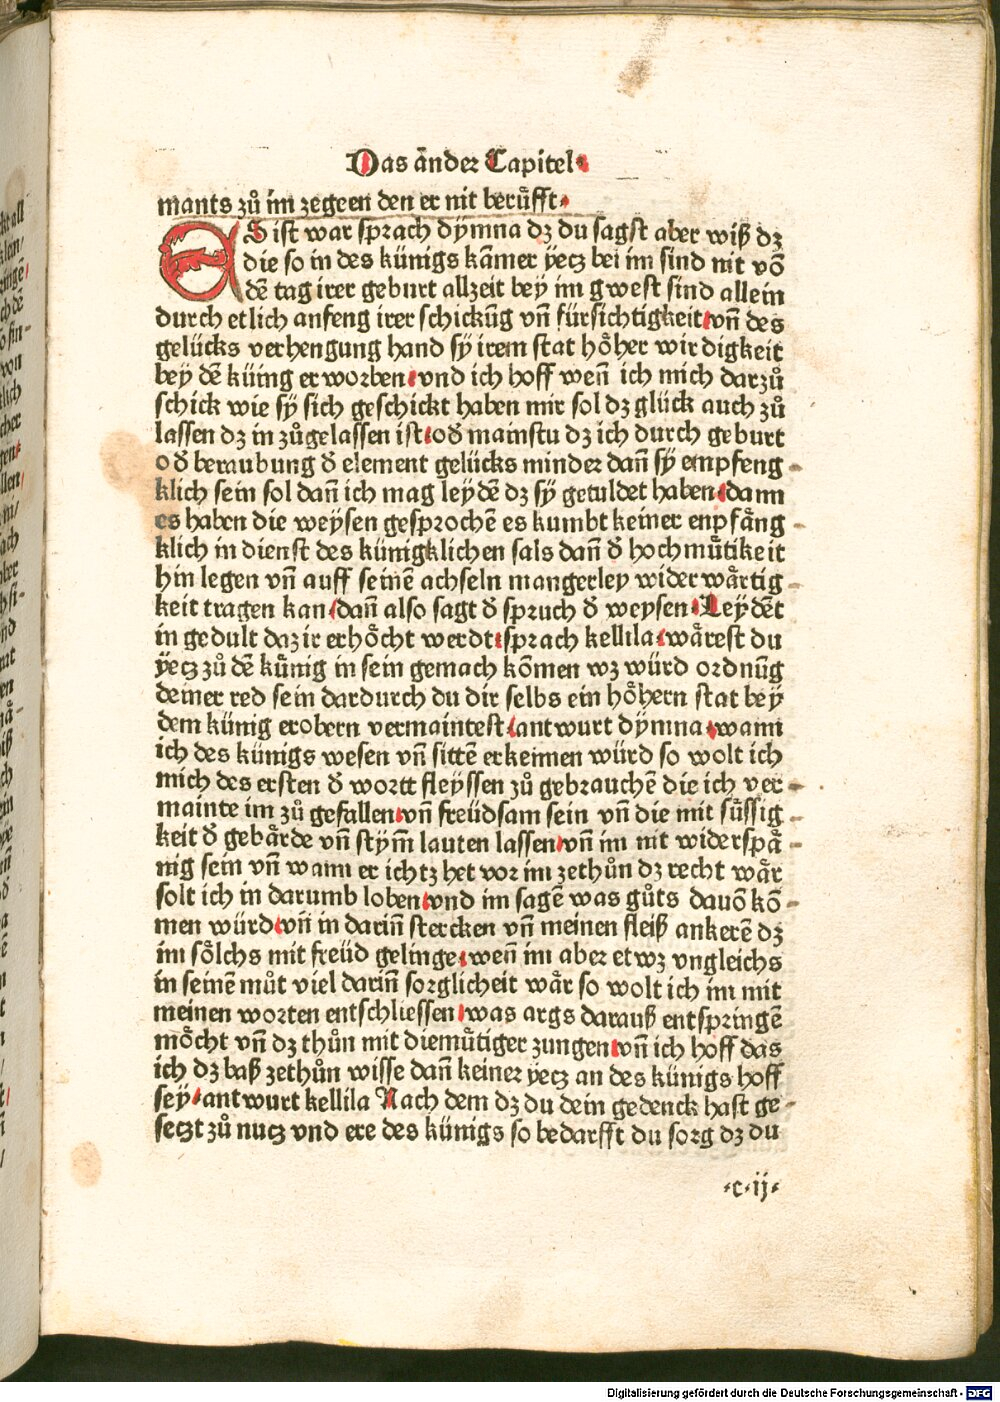 Das ander Capitel
mants zů im zegeen den er nit berůfft
ES ist war sprach dymna dz du sagst aber wiß dz
die so in des künigs kamer yecz bei im sind nit võ
dẽ tag irer geburt allzeit bey im gwest sind allein
durch etlich anfeng irer schickũg vñ fürsichtigkeit vñ des
gelücks verhengung hand sy irem stat hoͤher wirdigkeit
bey dẽ künig erworben vnd ich hoff weñ ich mich darzů
schick wie sy sich geschickt haben mir sol dz glück auch zů
lassen dz in zůgelassen ist od̕ mainstu dz ich durch geburt
od̕ beraubung d̕ element gelücks minder dañ sy empfeng-
klich sein sol dañ ich mag leydẽ dz sy getuldet haben dann
es haben die weysen gesprochẽ es kumbt keiner enpfaͤng-
klich in dienst des künigklichen sals dañ d̕ hochmuͤtikeit
hin legen vñ auff seinẽ achseln mangerley widerwaͤrtig-
keit tragen kan dañ also sagt d̕ spruch d̕ weysen Leydẽt
in gedult daz ir erhoͤcht werdt sprach kellila waͤrest du
yecz zů dẽ künig in sein gemach kõmen wz würd ordnũg
deiner red sein dardurch du dir selbs ein hoͤhern stat bey
dem künig erobern vermaintest antwurt dymna wann
ich des künigs wesen vñ sittẽ erkennen würd so wolt ich
mich des ersten d̕ wortt fleyssen zů gebrauchẽ die ich ver-
mainte im zů gefallen vñ freüdsam sein vñ die mit suͤssig-
keit d̕ gebaͤrde vñ stym̃ lauten lassen vñ im nit widerspaͤ-
nig sein vñ wann er ichtz het vor im zethůn dz recht waͤr
solt ich in darumb loben vnd im sagẽ was gůts dauõ kõ-
men würd vñ in dariñ stercken vñ meinen fleiß ankerẽ dz
im soͤlchs mit freüd gelinge weñ im aber etwz vngleichs
in seinẽ můt viel dariñ sorglicheit waͤr so wolt ich im mit
meinen worten entschliessen was args darauß entspringẽ
moͤcht vñ dz thůn mit diemuͤtiger zungen vñ ich hoff das
ich dz baß zethůn wisse dañ keiner yecz an des künigs hoff
sey antwurt kellila Nach dem dz du dein gedenck hast ge-
seczt zů nucz vnd ere des künigs so bedarfft du sorg dz du
c ij
Digitalisierung gefördert durch die Deutsche Forschungsgemeinschaft - DFG